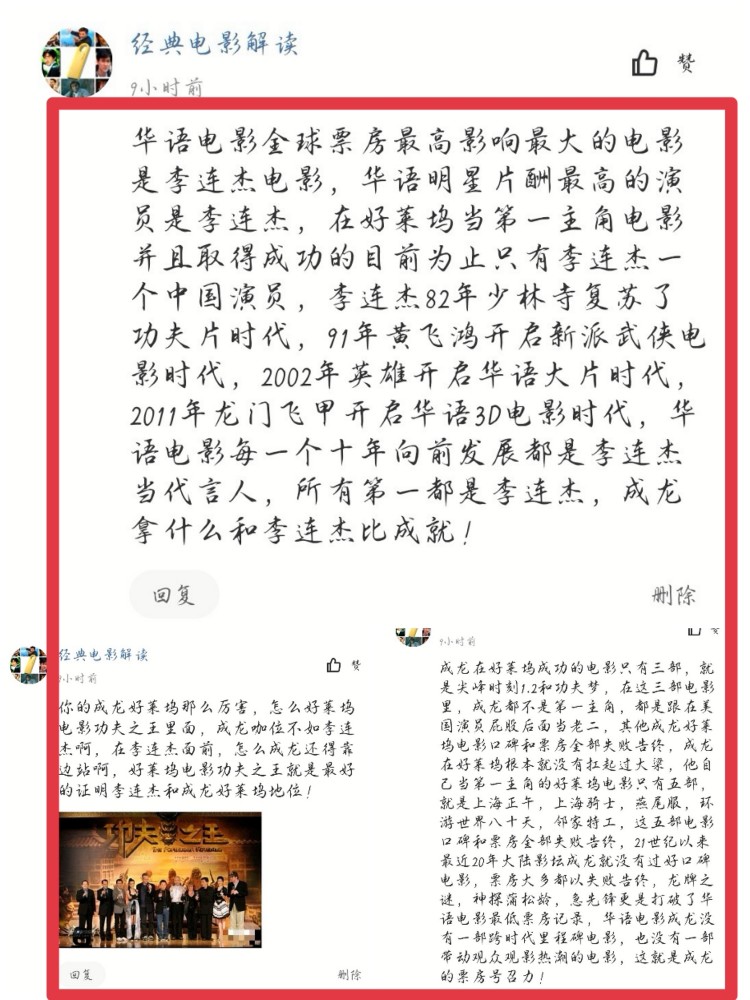 经典电影解读
赞
9小时前
华语电影全球票房最高影响最大的电影
是李连杰电影，华语明星片酬最高的演
员是李连杰，在好莱坞当第一主角电影
并且取得成功的目前为止只有李连杰一
个中国演员，李连杰82年少林寺复苏了
功夫片时代，91年黄飞鸿开启新派武侠电
影时代，2002年英雄开启华语大片时代，
2011年龙门飞甲开启华语3D电影时代，华
语电影每一个十年向前发展都是李连杰
当代言人，所有第一都是李连杰，成龙
拿什么和李连杰比成就！
回复
删除
经典电影解读
赞
小时前
你的成龙好莱坞那么厉害，怎么好莱坞
电影功夫之王里面，成龙咖位不如李连
杰啊，在李连杰面前，怎么成龙还得靠
边站啊，好莱坞电影功夫之王就是最好
的证明李连杰和成龙好莱坞地位！
功夫之王
THE FORBIDDEN KINGDOM
回复
删除
9小时前
成龙在好莱坞成功的电影只有三部，就
是尖峰时刻1.2和功夫梦，在这三部电影
里，成龙都不是第一主角，都是跟在美
国演员屁股后面当老二，其他成龙好莱
坞电影口碑和票房全部失败告终，成龙
在好莱坞根本就没有扛起过大梁，他自
己当第一主角的好莱坞电影只有五部，
就是上海正午，上海骑士，燕尾服，环
游世界八十天，邻家特工，这五部电影
口碑和票房全部失败告终，21世纪以来
最近20年大陆影坛成龙就没有过好口碑
电影，票房大多都以失败告终，龙牌之
谜，神探蒲松龄，急先锋更是打破了华
语电影最低票房记录，华语电影成龙没
有一部跨时代里程碑电影，也没有一部
带动观众观影热潮的电影，这就是成龙
的票房号召力！